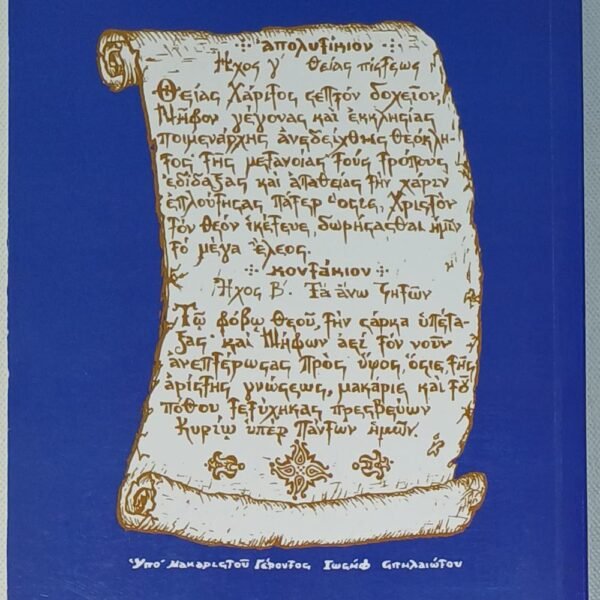 ⁘ ἀπολυτίκιον ⁘
Ἦχος γ΄ Θείας πίστεως
Θείας Χάριτος σεπτὸν δοχεῖον,
Νήφων γέγονας καὶ ἐκκλησίας
ποιμενάρχης ἀνεδείχθης θεόκλη-
τος τῆς μετανοίας τοὺς τρόπους
ἐδίδαξας καὶ ἀπαθείας τὴν χάριν
ἐπλούτησας πάτερ ὅσιε, Χριστὸν
τὸν Θεὸν ἱκέτευε, δωρήσασθαι ἡμῖν
τὸ μέγα ἔλεος.
⁘ κοντάκιον ⁘
Ἦχος Β΄. Τὰ ἄνω ζητῶν
Τῷ φόβῳ Θεοῦ, τὴν σάρκα ὑπέτα-
ξας· καὶ Νήφων ἀεὶ τὸν νοῦν
ἀνεπτέρωσας πρὸς ὕψος, ὅσιε, τῆς
ἀρίστης γνώσεως, μακάριε καὶ τοῦ
πόθου τετύχηκας πρεσβεύων
Κυρίῳ ὑπὲρ Πάντων ἡμῶν.
Ὑπὸ Μακαριστοῦ Γέροντος Ἰωσὴφ Σπηλαιώτου